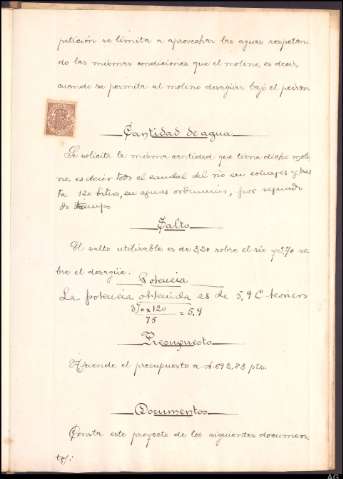 petición se limita a aprovechar las aguas respetan
do las mismas condiciones que el molino es decir
cuando se permita al molino desaguar bajo el peiron
Cantidad de agua
Se solicita la misma cantidad que toma dicho molino
es decir todo el caudal del río en estiajes y hasta
120 litros, en aguas ordinarias, por segundo
de tiempo
Salto
El salto utilizable es de 5,20 sobre el río y 3,70 so
bre el desagüe.
Potencia
La potencia obtenida es de 5,9 C. teóricos
370 x 120
75
= 5,9
Presupuesto
Asciende el presupuesto a pta
Documentos
Consta este proyecto de los siguientes documen
tos: